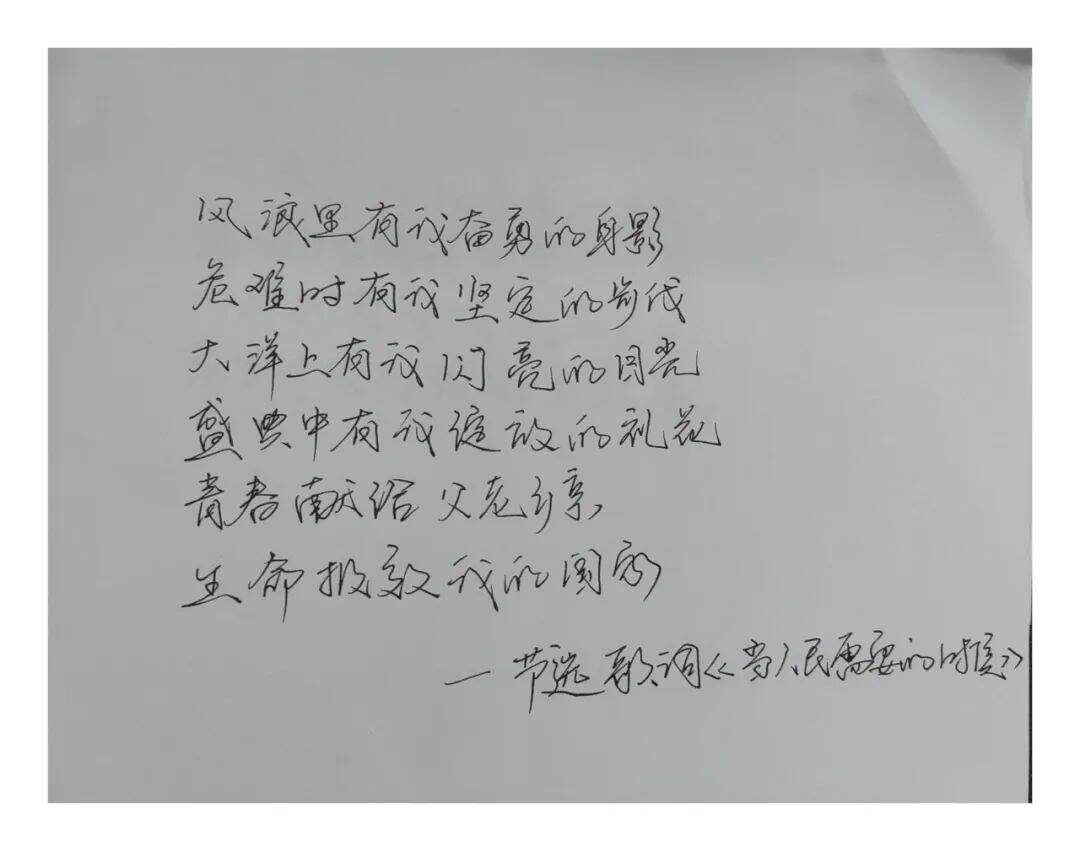 风浪里有我奋勇的身影
危难时有我坚定的步伐
大洋上有我闪亮的目光
盛典中有我绽放的礼花
青春献给父老乡亲
生命报效我的国家
一节选歌词《当人民需要的时候》